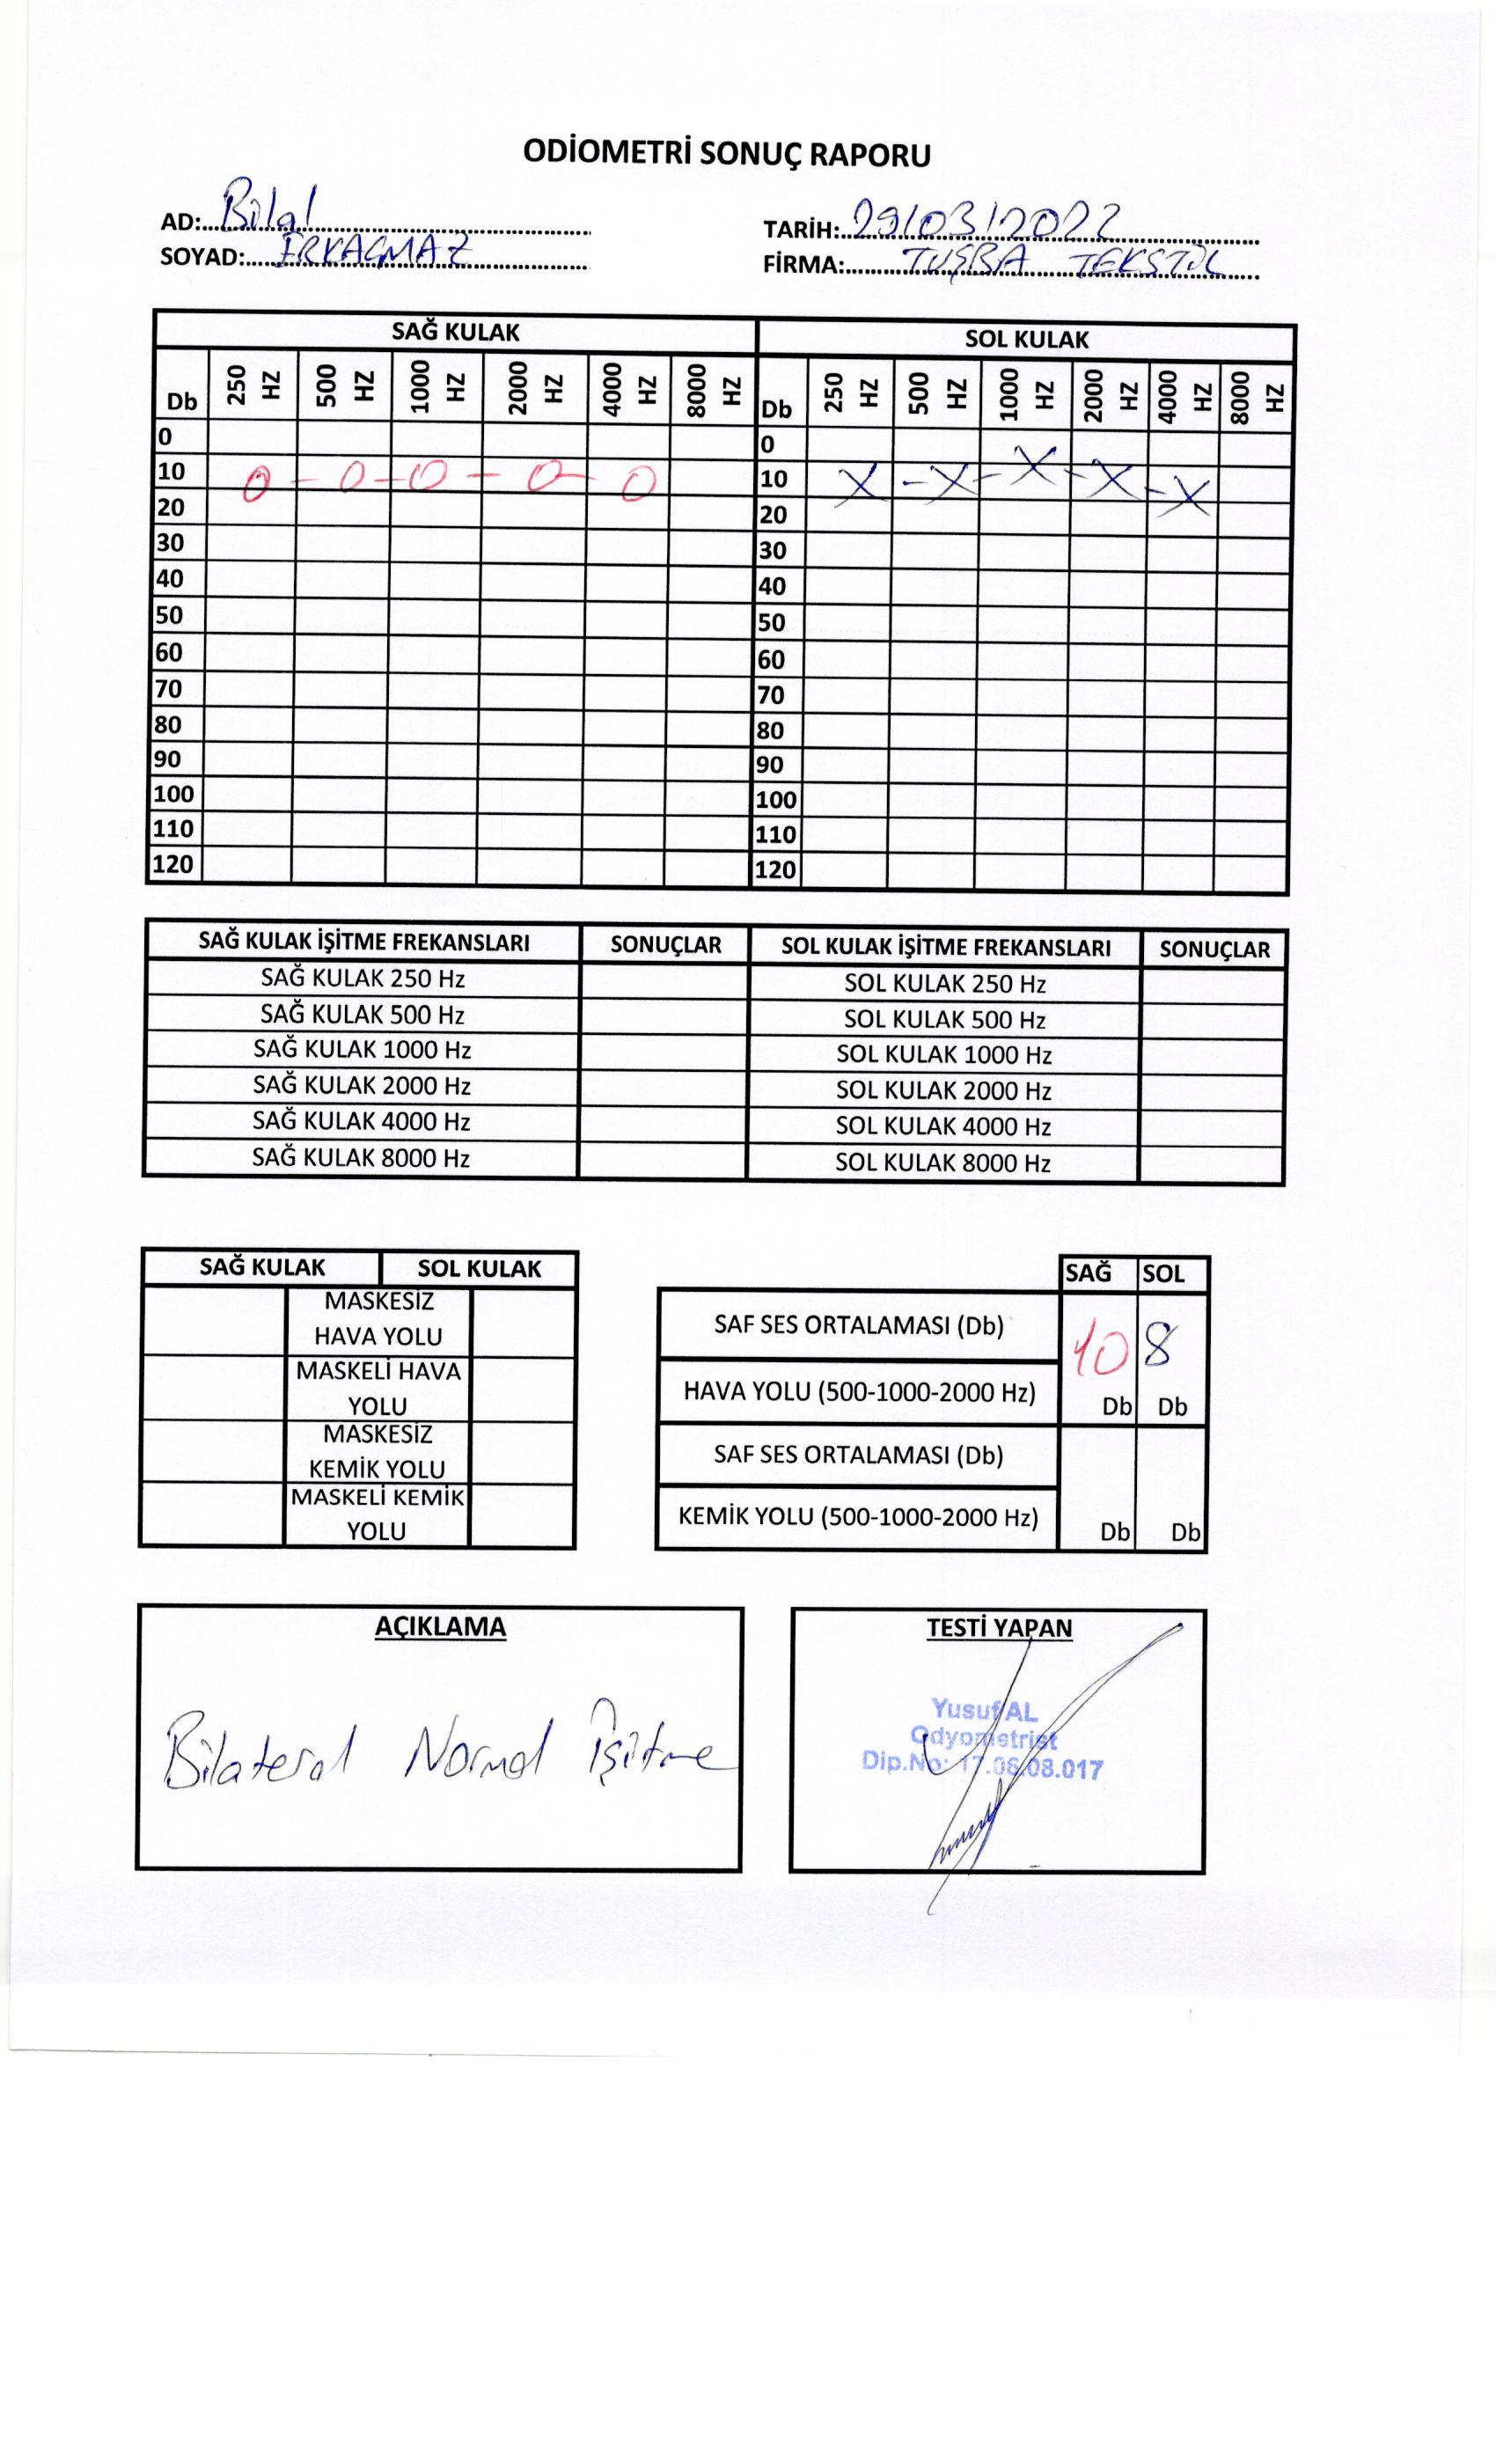 ODİOMETRİ SONUÇ RAPORU
AD: Bilal
SOYAD: IRKAÇMAZ
TARİH: 29/03/2022
FİRMA: TUŞBA TEKSTİL
SAĞ KULAK SOL KULAK
Db 250 HZ 500 HZ 1000 HZ 2000 HZ 4000 HZ 8000 HZ Db 250 HZ 500 HZ 1000 HZ 2000 HZ 4000 HZ 8000 HZ
0 0
10 O - O - O - O - O 10 X - X - X - X - X
20 20
30 30
40 40
50 50
60 60
70 70
80 80
90 90
100 100
110 110
120 120
SAĞ KULAK İŞİTME FREKANSLARI SONUÇLAR SOL KULAK İŞİTME FREKANSLARI SONUÇLAR
SAĞ KULAK 250 Hz SOL KULAK 250 Hz
SAĞ KULAK 500 Hz SOL KULAK 500 Hz
SAĞ KULAK 1000 Hz SOL KULAK 1000 Hz
SAĞ KULAK 2000 Hz SOL KULAK 2000 Hz
SAĞ KULAK 4000 Hz SOL KULAK 4000 Hz
SAĞ KULAK 8000 Hz SOL KULAK 8000 Hz
SAĞ KULAK SOL KULAK
MASKESİZ
HAVA YOLU
MASKELİ HAVA
YOLU
MASKESİZ
KEMİK YOLU
MASKELİ KEMİK
YOLU
SAĞ SOL
SAF SES ORTALAMASI (Db) 10 8
HAVA YOLU (500-1000-2000 Hz) Db Db
SAF SES ORTALAMASI (Db)
KEMİK YOLU (500-1000-2000 Hz) Db Db
AÇIKLAMA
Bilateral Normal İşitme
TESTİ YAPAN
Yusuf AL
Odyometrist
Dip.No: 17.06.08.017